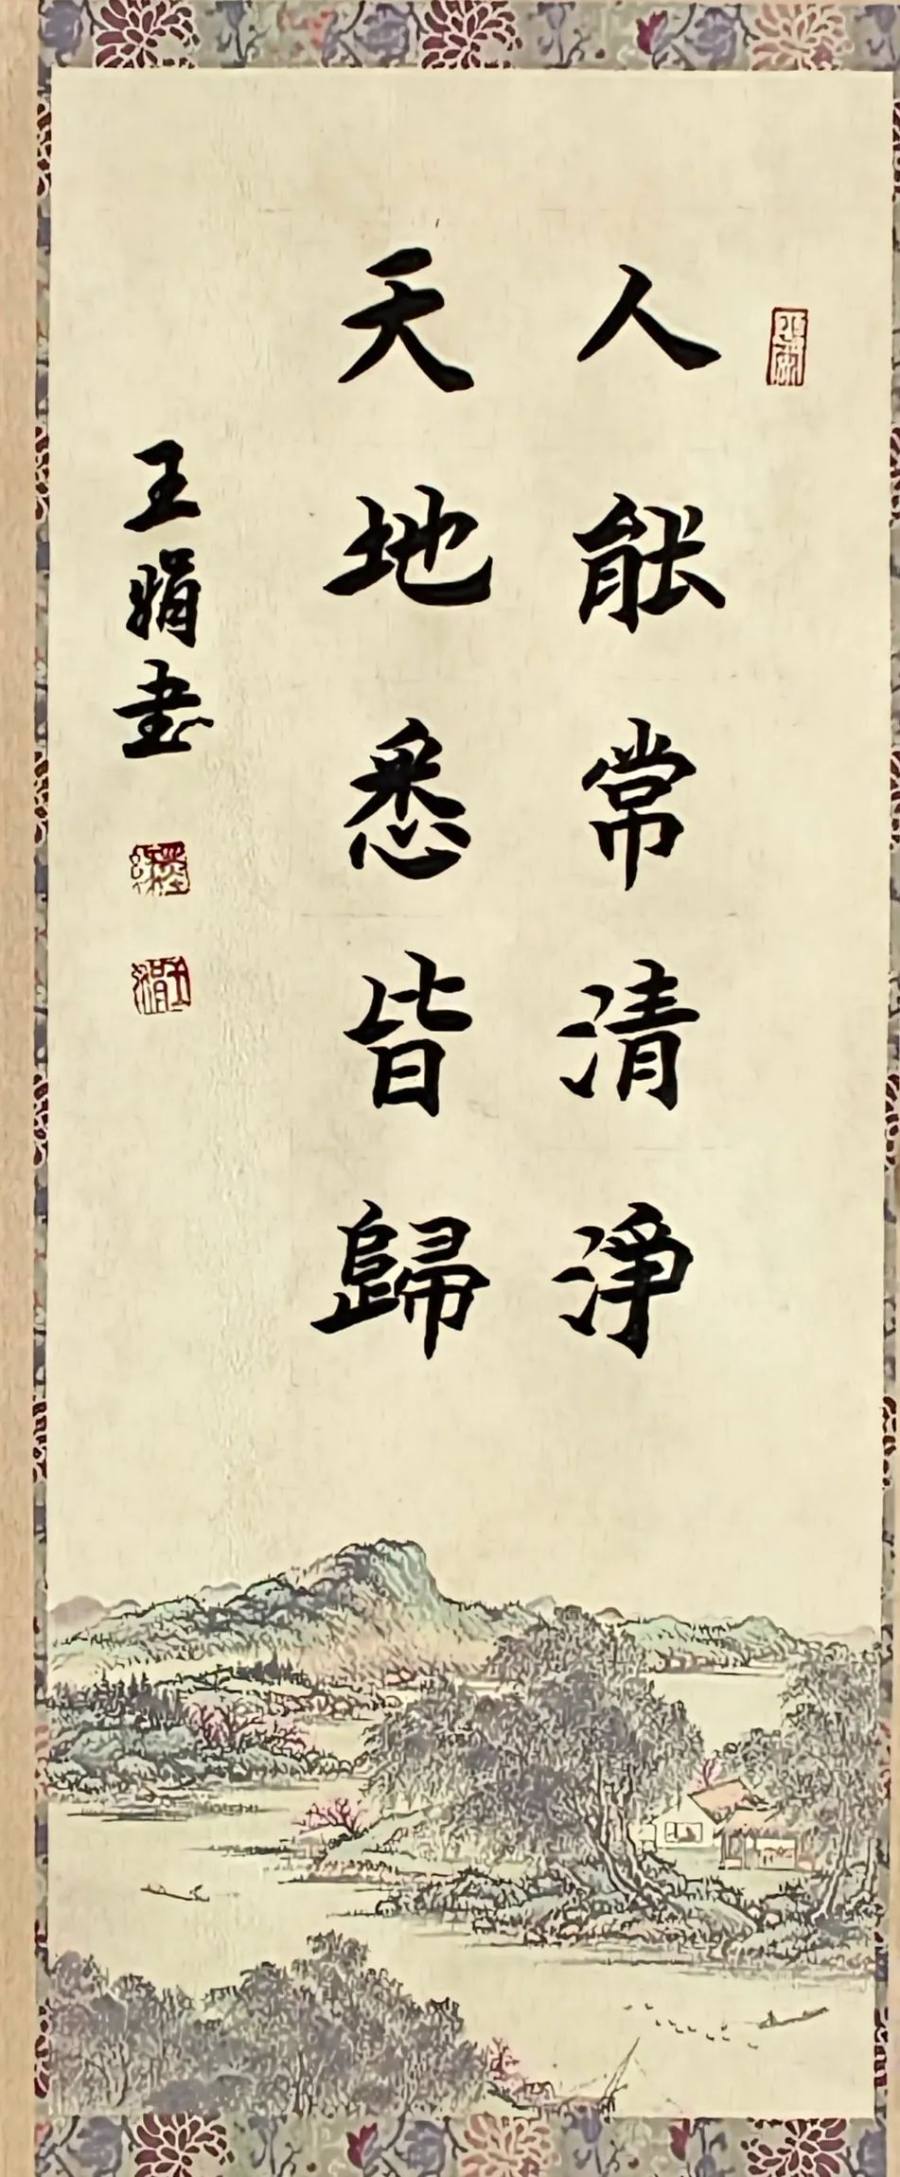 人能常清淨
天地悉皆歸
王娟書